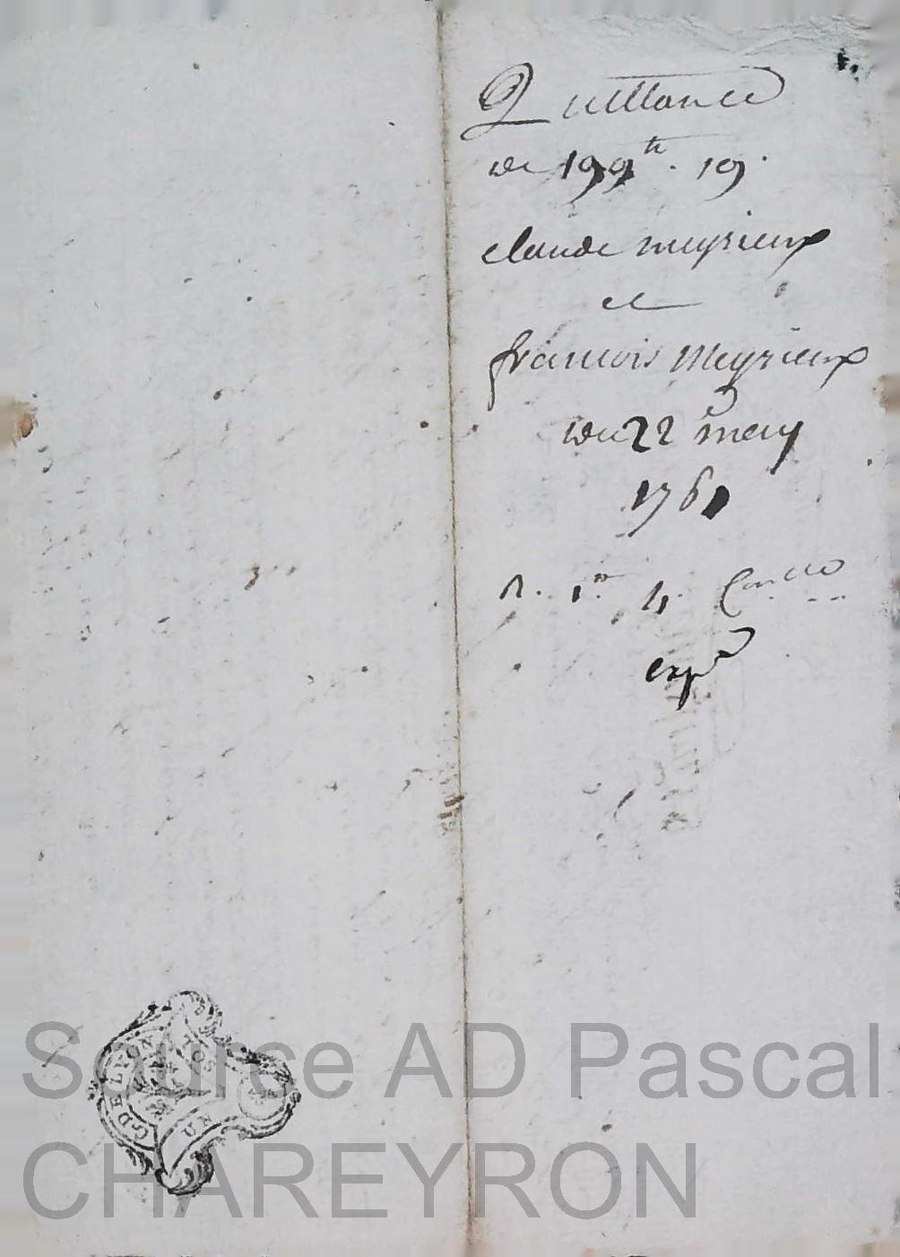 Quittance
de 199 tt. 19.
claude meyrieux
et
francois Meyrieux
du 22 may
1761
1. 1re 4. Con.lle
exp.
G DE LYON
Source AD Pascal
CHAREYRON